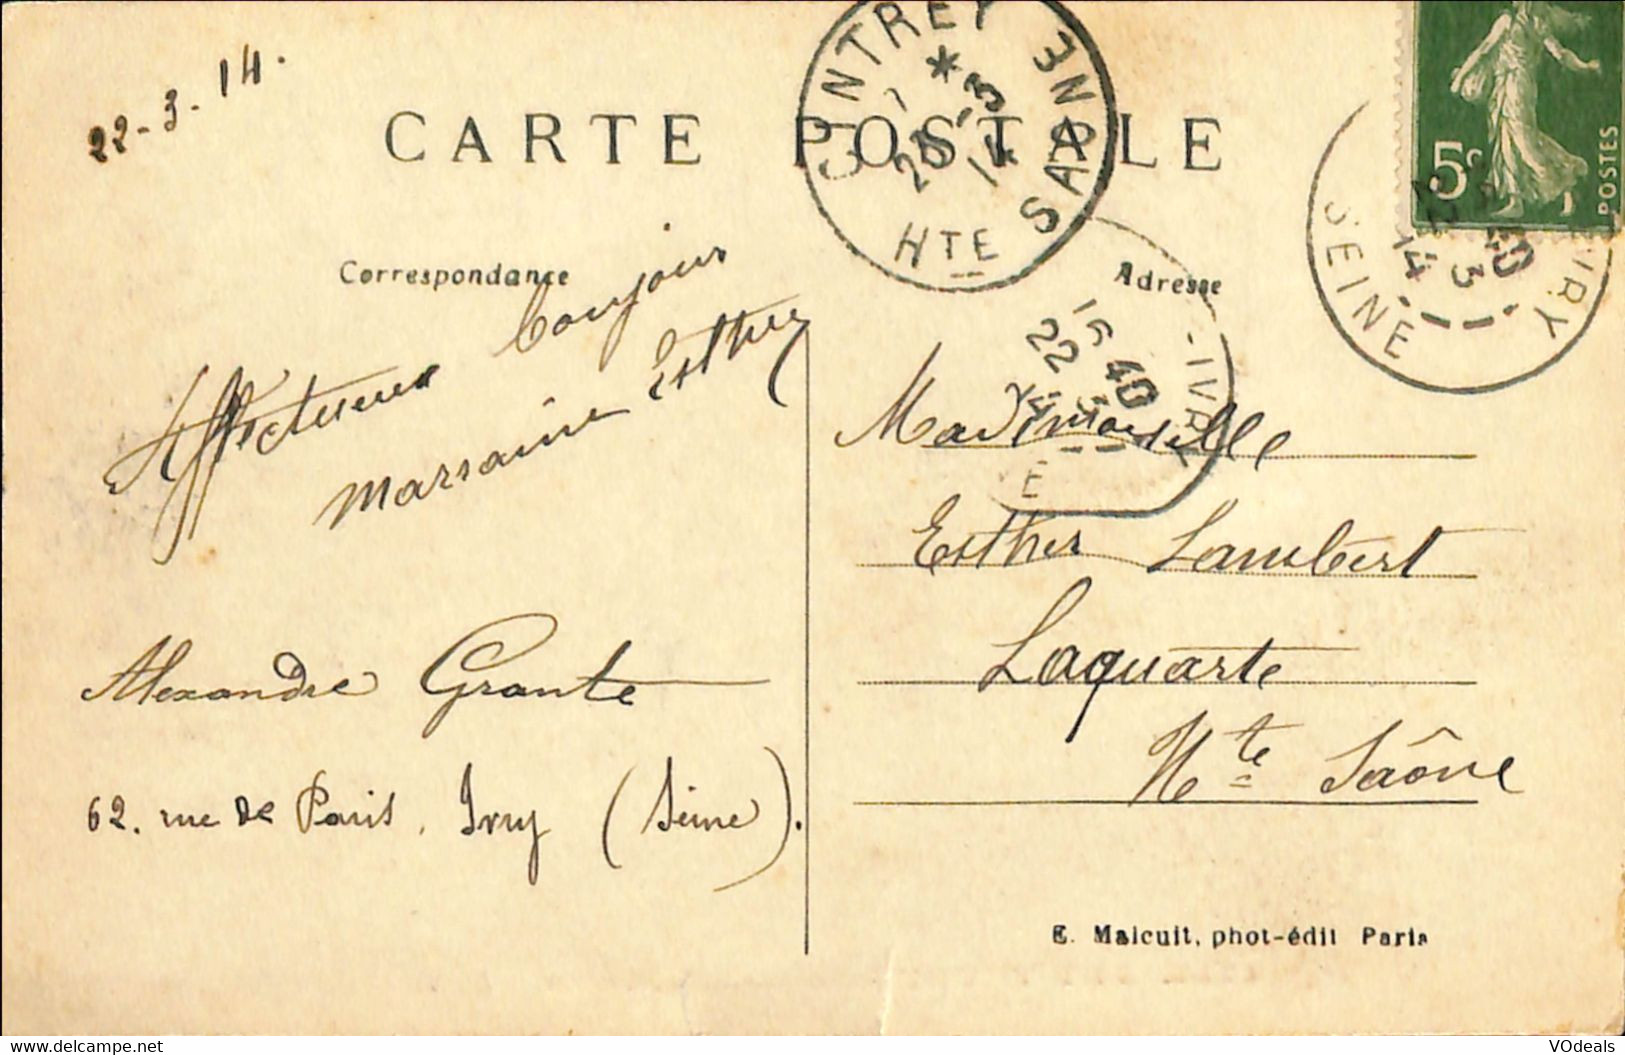 22-3-14.
CARTE POSTALE
CINTREY * HTE SAONE
7 * 23-3 14
5c POSTES
IVRY SEINE
16 40
22 3 14
Correspondance
Adresse
Affectueux bonjour
marraine Esther
Mademoiselle
Esther Lambert
Laquarte
Hte Saône
Alexandre Grante
62. rue de Paris, Ivry (Seine).
E. Malcuit, phot-édit Paris
VOdeals - https://www.delcampe.net